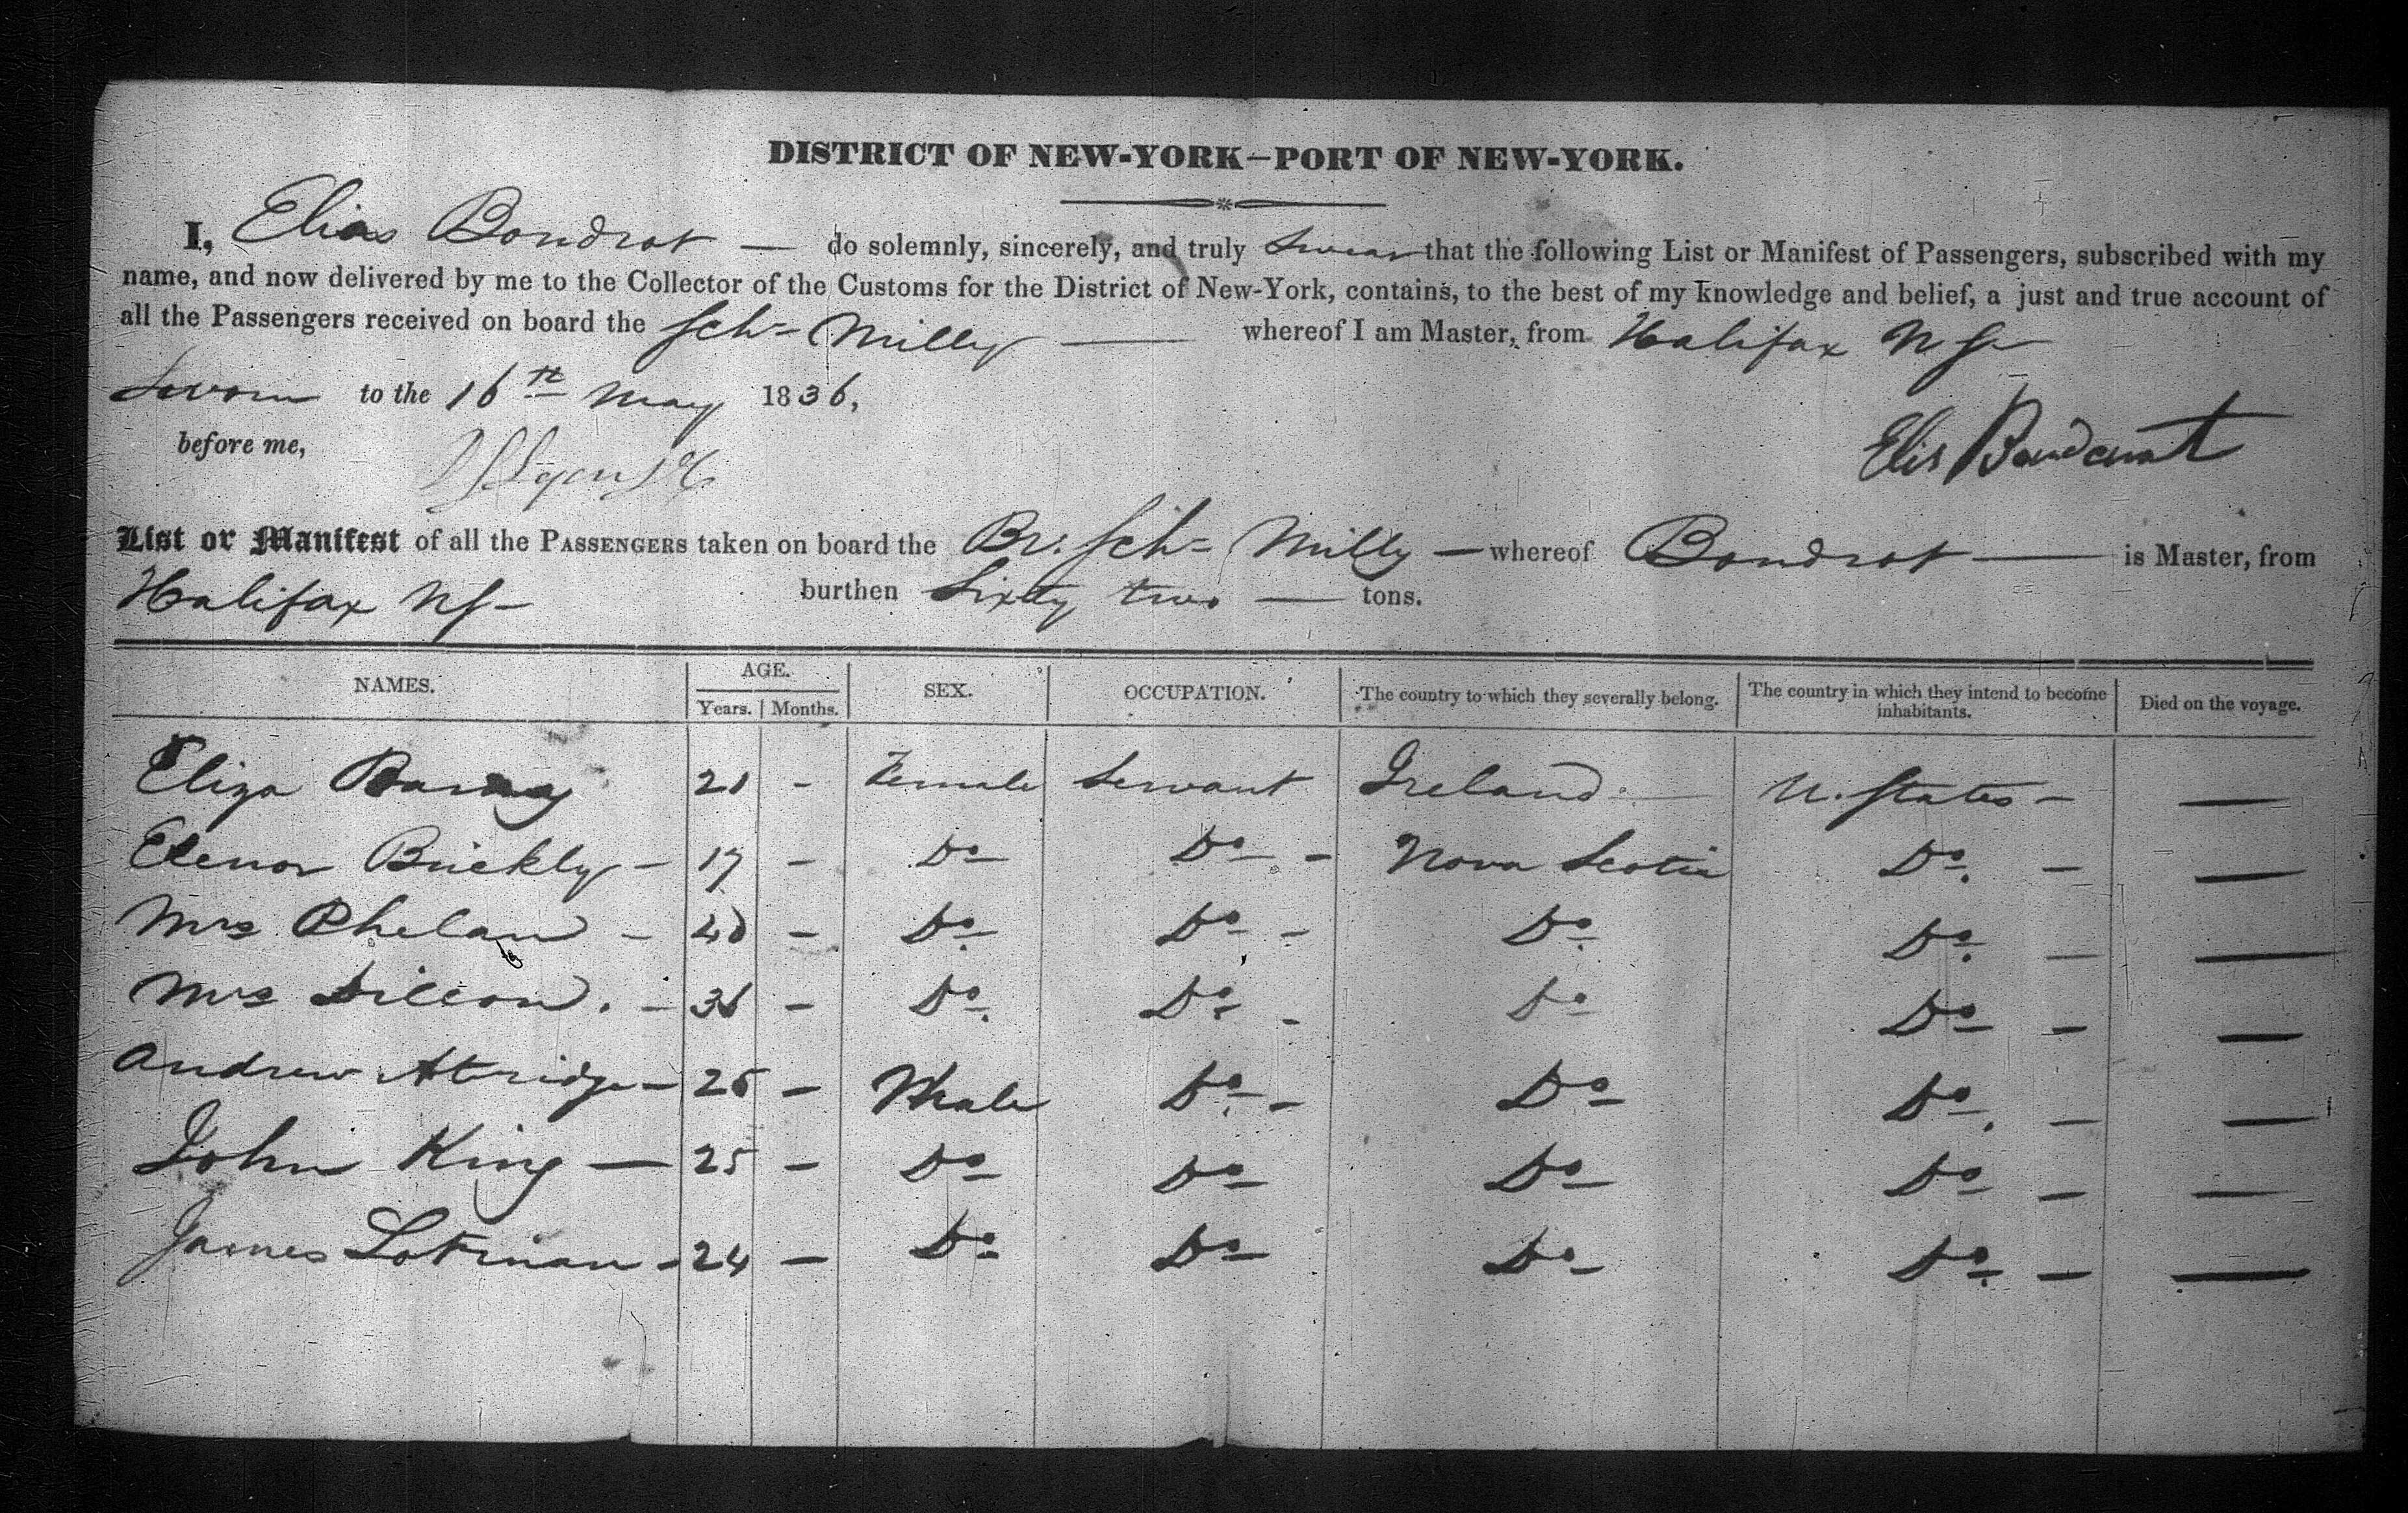 DISTRICT OF NEW-YORK—PORT OF NEW-YORK.
I, Elias Boudrot — do solemnly, sincerely, and truly Swear that the following List or Manifest of Passengers, subscribed with my
name, and now delivered by me to the Collector of the Customs for the District of New-York, contains, to the best of my knowledge and belief, a just and true account of
all the Passengers received on board the Sch= Milly — whereof I am Master, from Halifax N S
Sworn to the 16th May 1836,
before me,
Elis Boudraut
List or Manifest of all the PASSENGERS taken on board the Br. Sch= Milly — whereof Boudrot — is Master, from
Halifax NS— burthen Sixty two — tons.
NAMES. AGE. Years. Months. SEX. OCCUPATION. The country to which they severally belong. The country in which they intend to become inhabitants. Died on the voyage.
Eliza 21 - Female Servant Ireland U. States - —
Elenor Buckly - 19 - Do Do - Nova Scotia Do. - —
Mrs Phelan - 40 - Do. Do - Do. Do. - —
Mrs Dillon. - 36 - Do. Do - Do Do - —
Andrew Atridge - 26 - Male Do. - Do Do. - —
John King — 25 - Do Do Do Do - —
James Lotman - 24 - Do Do Do Do. - —